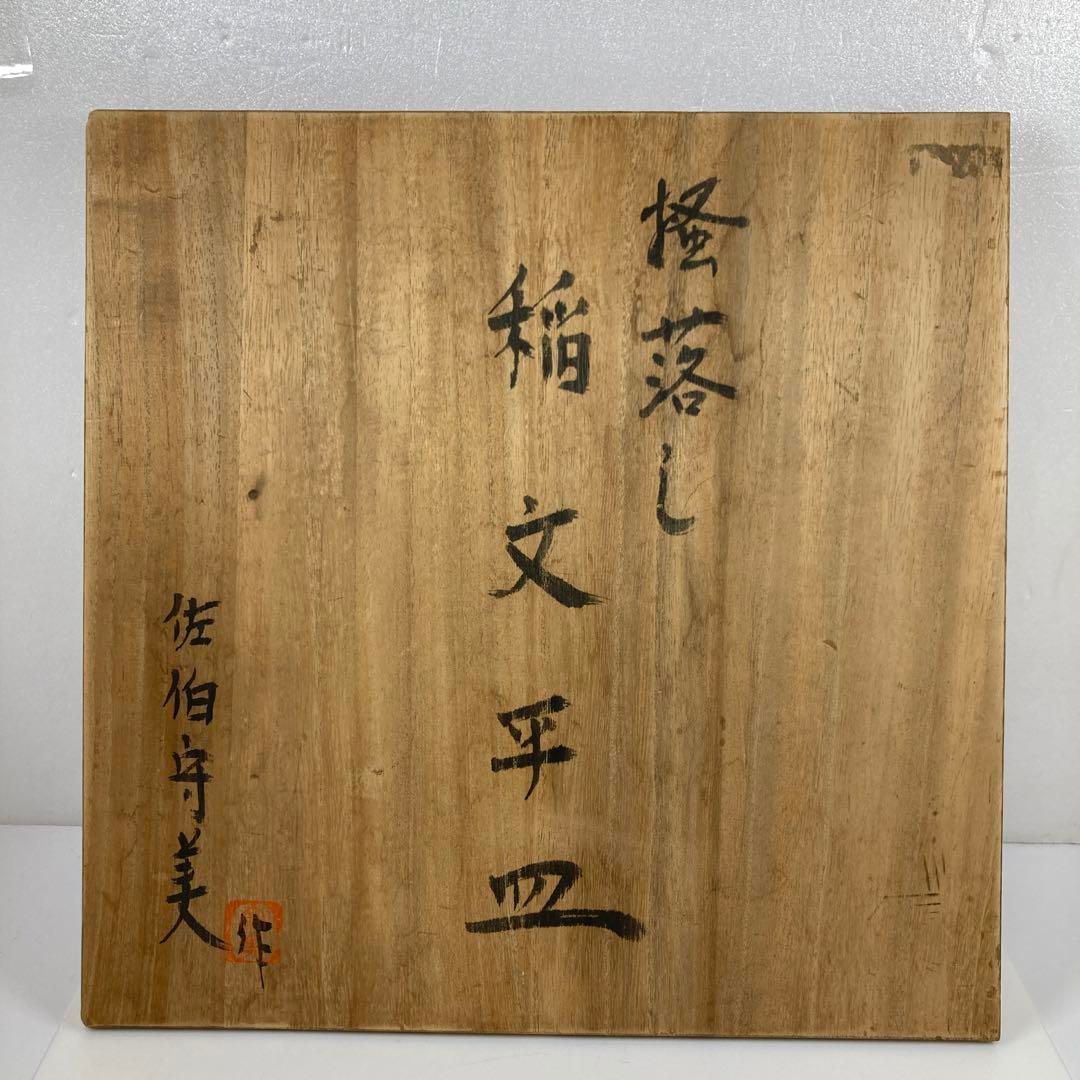 掻落し
稲文平皿
佐伯守美作